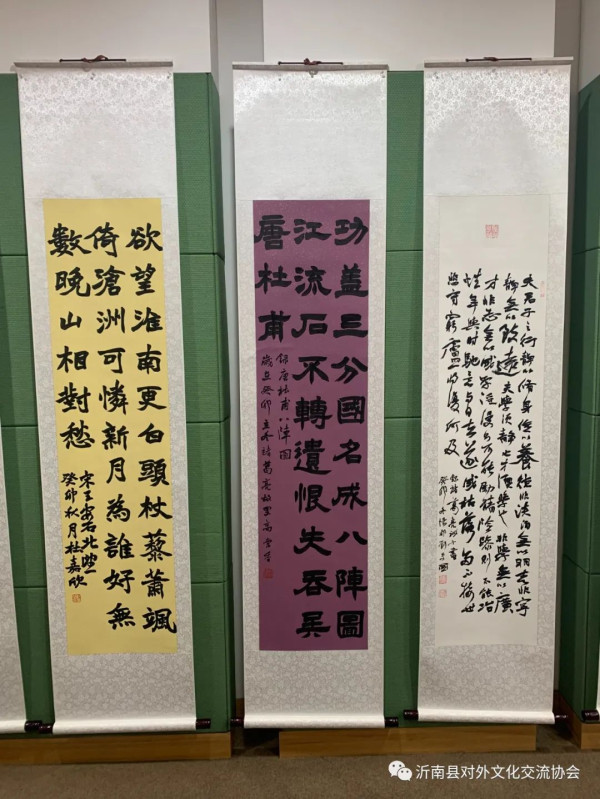 欲望淮南更白頭杖藜蕭颯
倚滄洲可憐新月為誰好無
數晚山相對愁
宋王安石北望
癸卯秋月杜嘉欣
功蓋三分國名成八陣圖
江流石不轉遺恨失吞吴
唐杜甫
錄唐杜甫八陣圖
癸卯立冬諸葛亮故里高
夫君子之行静以修身儉以養德非淡泊無以明志非寧
静無以致遠夫學須静也才須學也非學無以廣
才非志無以成學淫慢則不能勵精險躁則不能冶
性年與時馳意與日去遂成枯落多不接世
悲守窮廬將復何及
錄諸葛亮誡子書
癸卯
沂南县对外文化交流协会